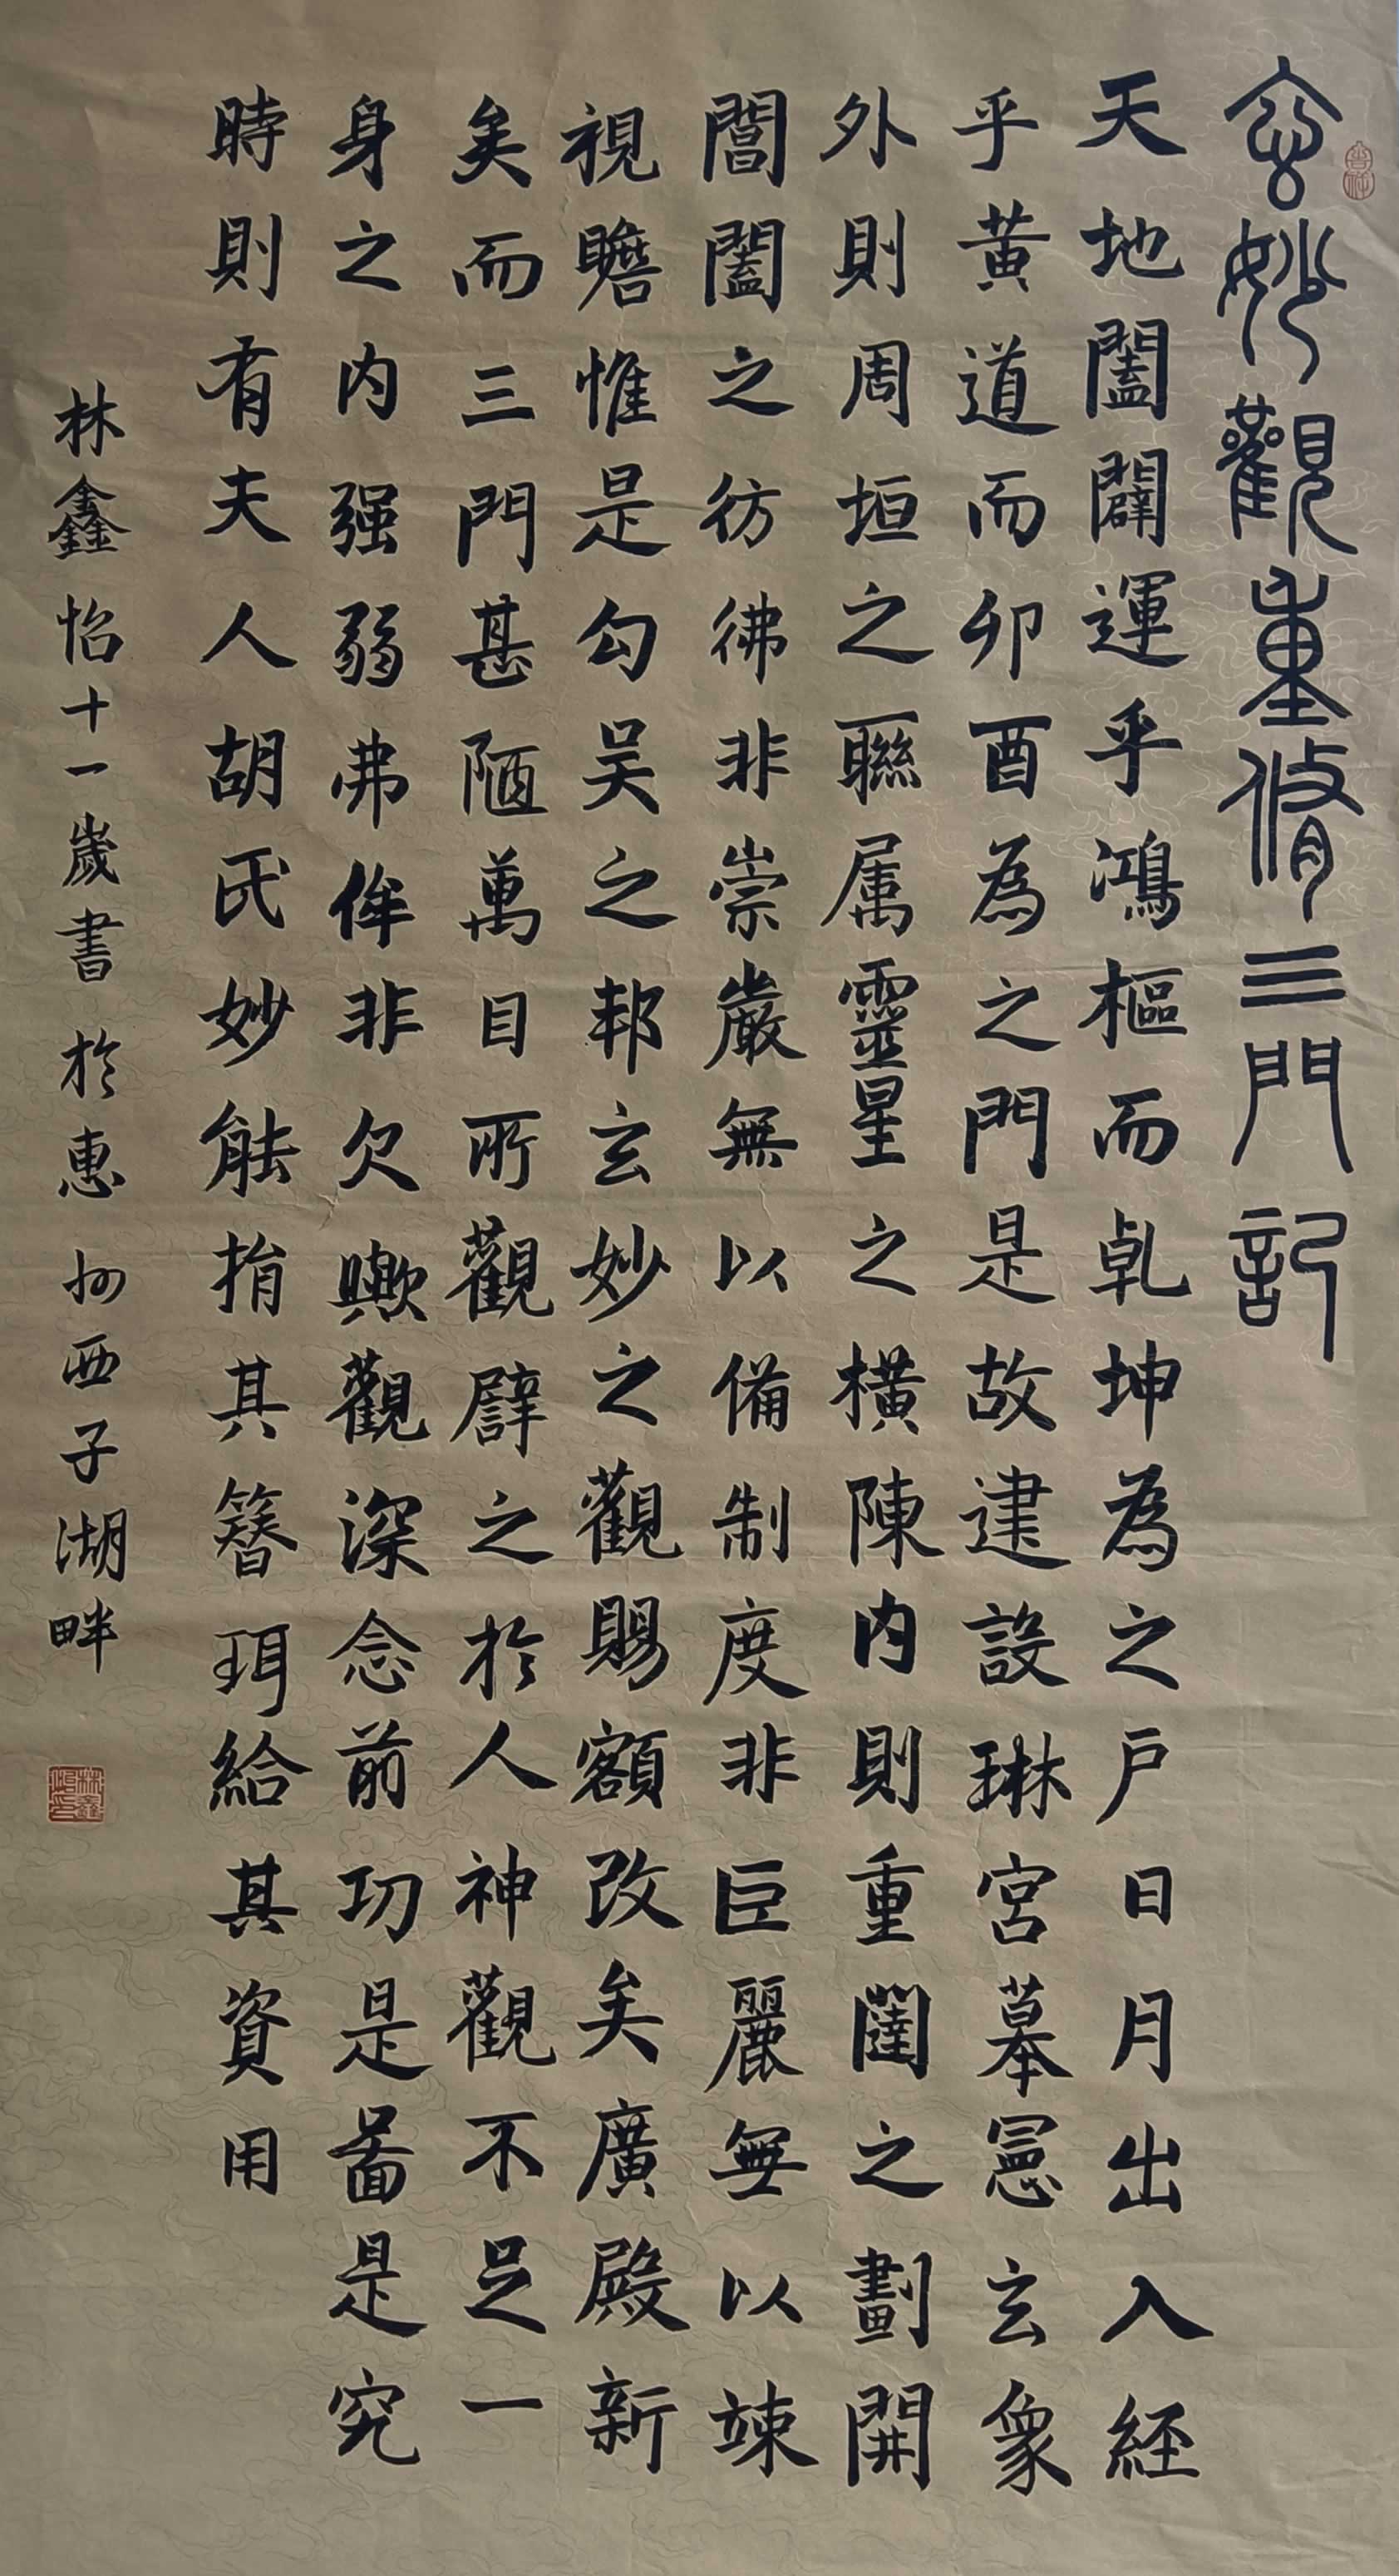 玄妙觀重脩三門記
天地闔闢運乎鴻樞而乹坤為之户日月出入經
乎黄道而卯酉為之門是故建設琳宮摹憲玄象
外則周垣之聯属靈星之横陳内則重闥之劃開
閶闔之彷彿非崇嚴無以備制度非巨麗無以竦
視瞻惟是勾吴之邦玄妙之觀賜額改矣廣殿新
矣而三門甚陋萬目所觀譬之於人神觀不足一
身之内强弱弗侔非欠歟觀深念前功是啚是究
時則有夫人胡氏妙能捐其簮珥給其資用
林鑫怡十一歲書於惠州西子湖畔
吉祥
林鑫怡印